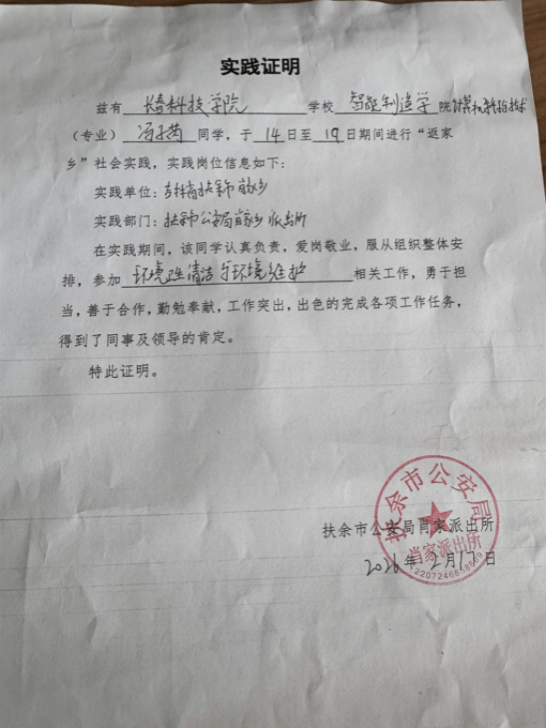 实践证明
兹有 长春科技学院 学校 智能制造学 院计算机科学技术
（专业） 冯 同学，于 14 日至 19 日期间进行“返家
乡”社会实践，实践岗位信息如下：
实践单位：吉林省扶余市肖家乡
实践部门：扶余市公安局肖家乡派出所
在实践期间，该同学认真负责，爱岗敬业，服从组织整体安
排，参加 环境 清洁与环境维护 相关工作，勇于担
当，善于合作，勤勉奉献，工作突出，出色的完成各项工作任务，
得到了同事及领导的肯定。
特此证明。
扶余市公安局
扶余市公安局肖家派出所
肖家派出所
2026年2月17日